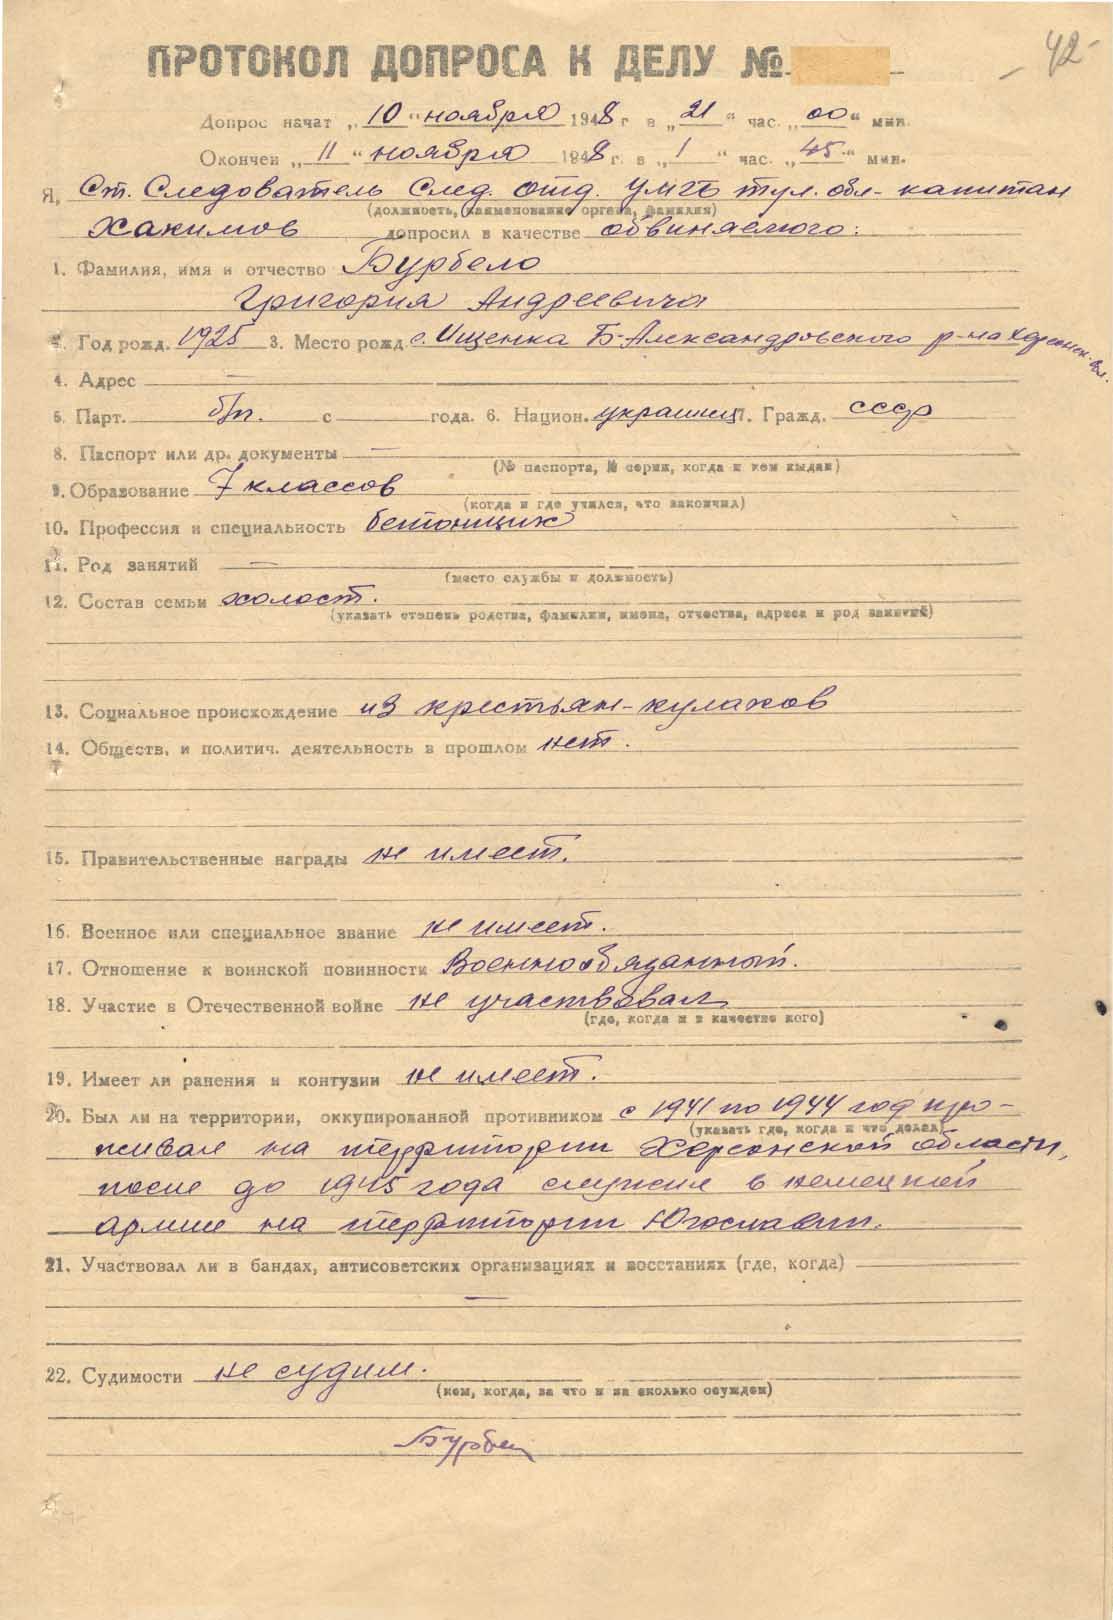 42
ПРОТОКОЛ ДОПРОСА К ДЕЛУ №
Допрос начат „10“ ноября 1948 г. в „21“ час. „00“ мин.
Окончен „11“ ноября 1948 г. в „1“ час. „45“ мин.
Я, Ст. Следователь След. отд. УМГБ тул. обл- капитан
(должность, наименование органа, фамилия)
Хакимов допросил в качестве обвиняемого:
1. Фамилия, имя и отчество Бурбело
Григория Андреевича
2. Год рожд. 1925 3. Место рожд. с. Ищенка Б-Александровского р-на Херсонск. обл.
4. Адрес —
5. Парт. б/п. с года. 6. Национ. украинец 7. Гражд. ссср
8. Паспорт или др. документы —
(№ паспорта, № серии, когда и кем выдан)
9. Образование 7 классов
(когда и где учился, что закончил)
10. Профессия и специальность бетонщик
11. Род занятий —
(место службы и должность)
12. Состав семьи холост.
(указать степень родства, фамилии, имена, отчества, адреса и род занятий)
13. Социальное происхождение из крестьян-кулаков
14. Обществ. и политич. деятельность в прошлом нет.
15. Правительственные награды не имеет.
16. Военное или специальное звание не имеет.
17. Отношение к воинской повинности Военнообязанный.
18. Участие в Отечественной войне не участвовал
(где, когда и в качестве кого)
19. Имеет ли ранения и контузии не имеет.
20. Был ли на территории, оккупированной противником с 1941 по 1944 год про-
(указать где, когда и что делал)
живал на территории Херсонской области,
после до 1945 года служил в немецкой
армии на территории Югославии.
21. Участвовал ли в бандах, антисоветских организациях и восстаниях (где, когда)
—
22. Судимости не судим.
(кем, когда, за что и на сколько осужден)
Бурбел